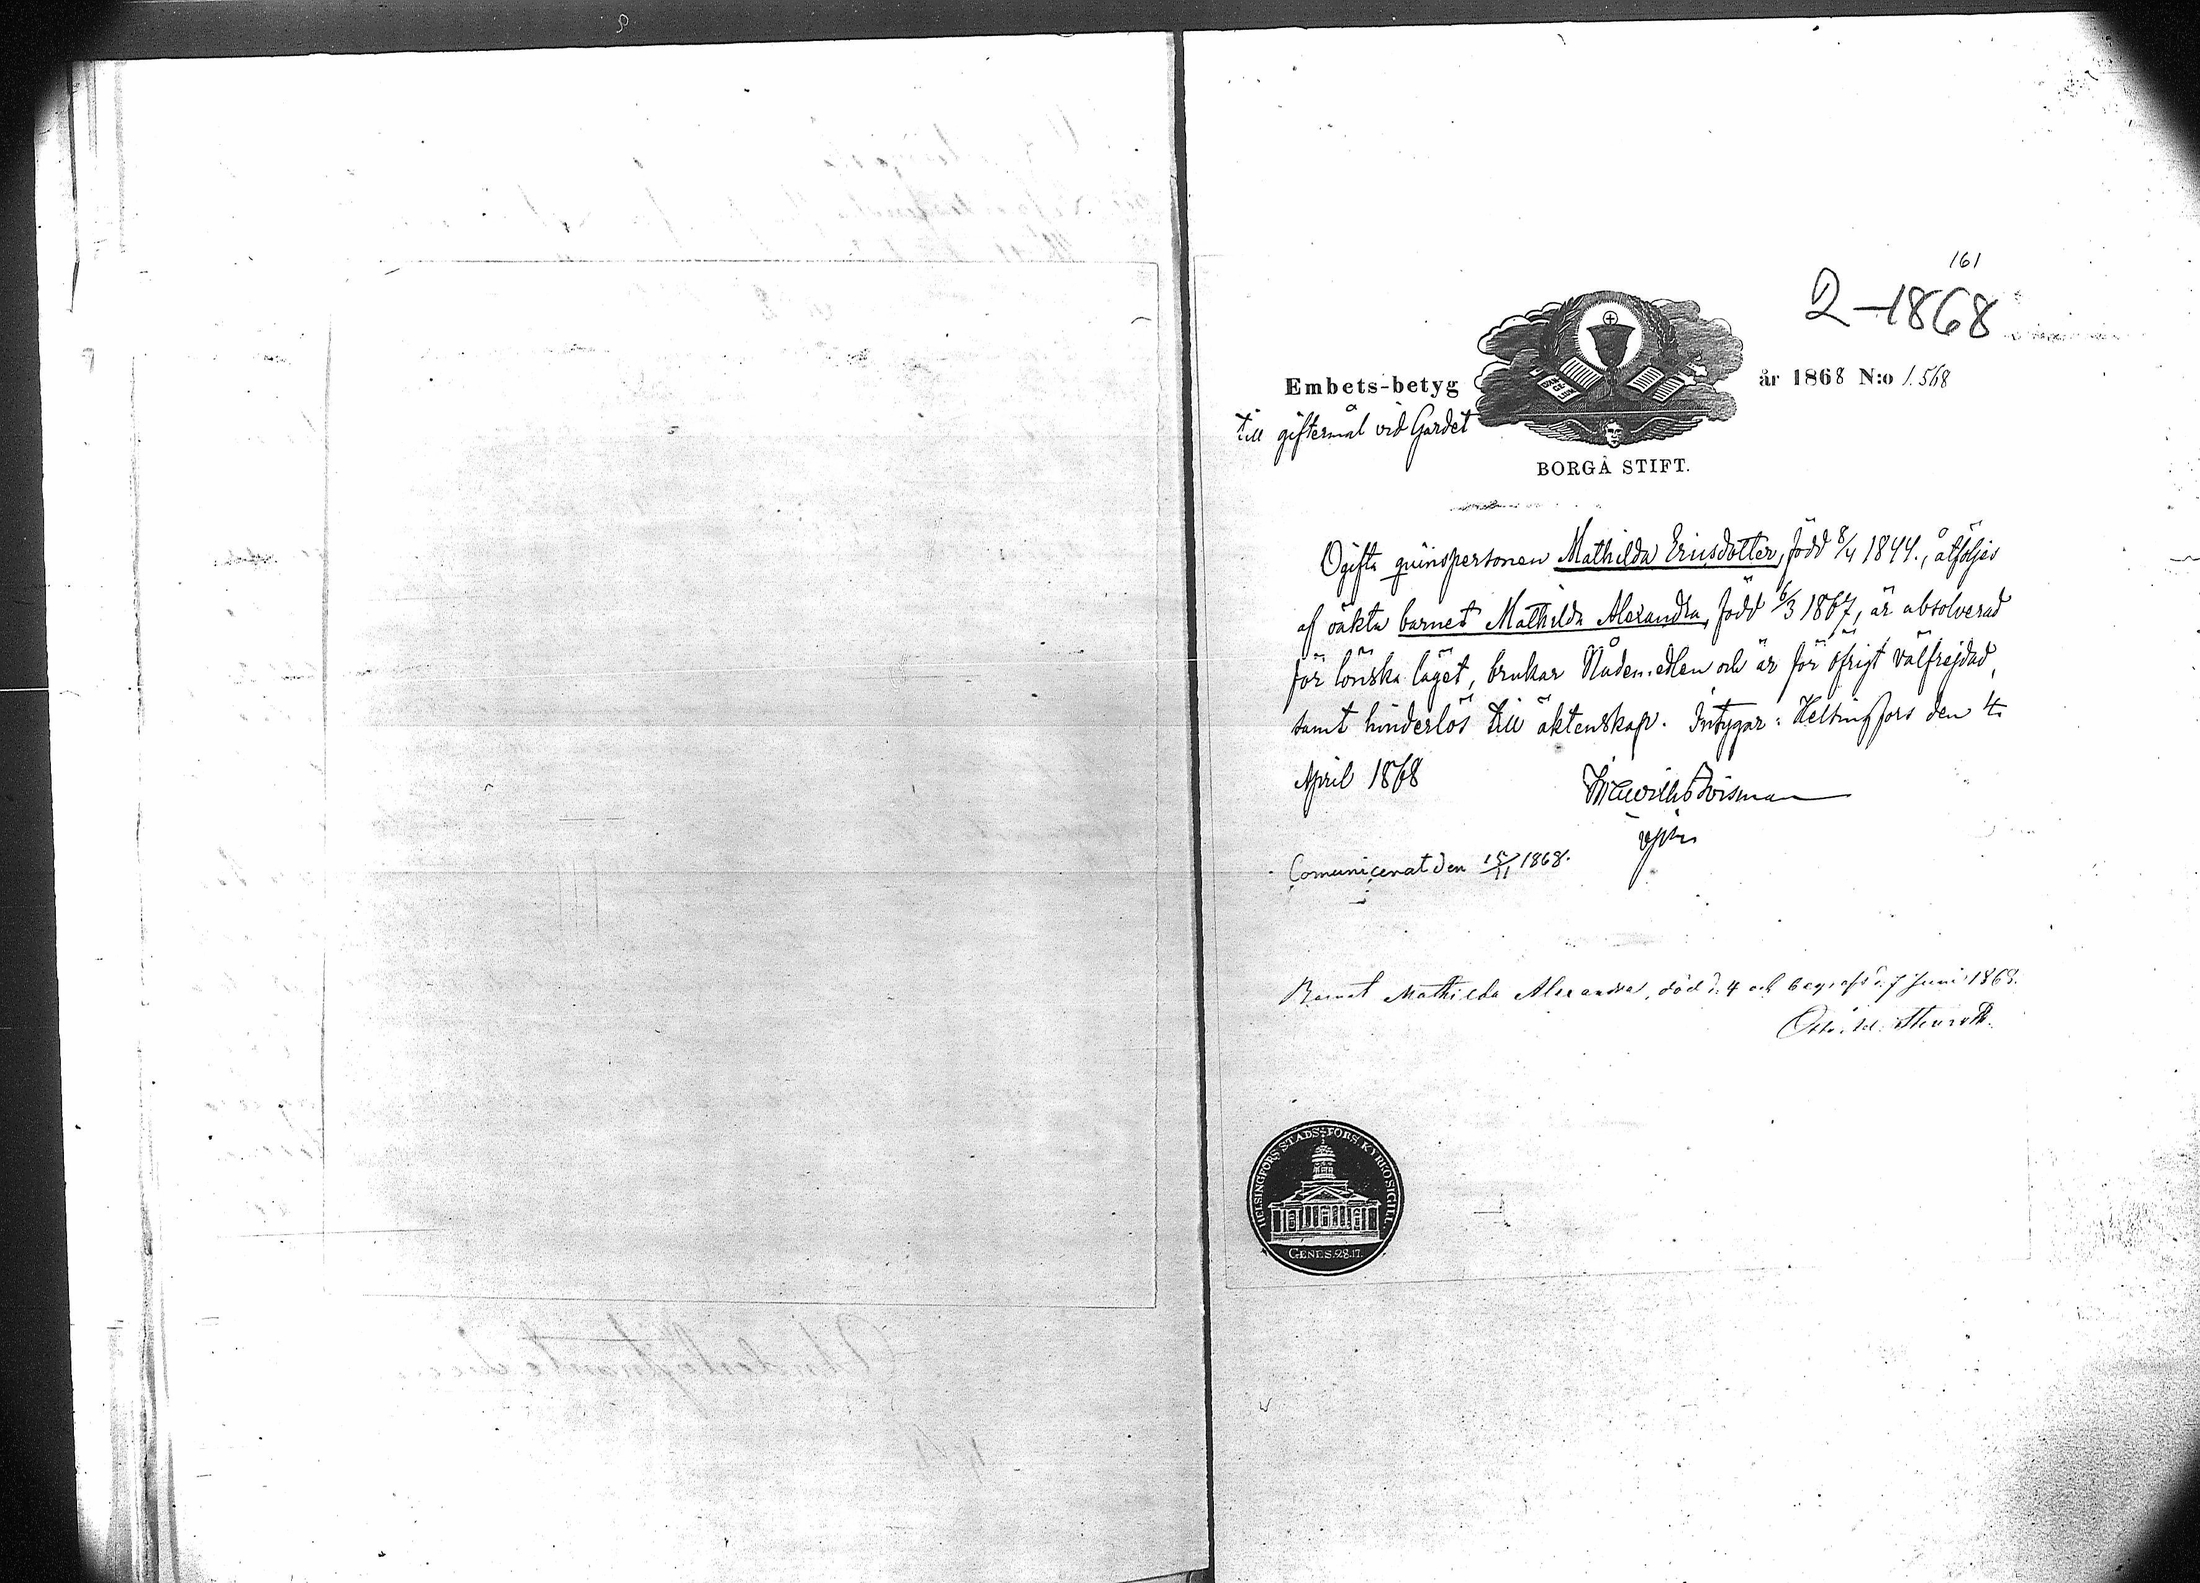 161
2-1868
Embets-betyg år 1868 N:o 1.568
till giftermål vid Gardet
BORGÅ STIFT.
Ogifta qvinspersonen Mathilda Ericsdotter, född 8/4 1844., åtföljes
af oäkta barnet Mathilda Alexandra, född 6/3 1867, är absolverad
för lönska läget, brukar Nådemedlen och är för öfrigt välfrejdad,
samt hinderlös till äktenskap. Intygar: Helsingfors den 4.
April 1868
Comunicerat den 15/11 1868.
Barnet Mathilda Alexandra, död d. 4 och begrafd d. 7 Juni 1868.
HELSINGFORS STADS-FÖRS. KYRKOSIGILL.
GENES. 28. 17.